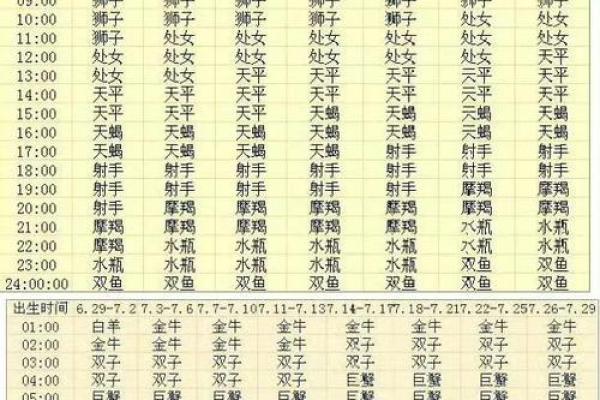 09:00 狮子 狮子 狮子 狮子 狮子
10:00 狮子 狮子 狮子 狮子 狮子 处女 处女
11:00 狮子 处女 处女 处女 处女 处女 处女
12:00 处女 处女 处女 处女 处女 处女 天平
13:00 处女 处女 天平 天平 天平 天平 天平
14:00 天平 天平 天平 天平 天平 天平 天平
15:00 天平 天平 天平 天蝎 天蝎 天蝎 天蝎
16:00 天蝎 天蝎 天蝎 天蝎 天蝎 天蝎 天蝎
17:00 天蝎 天蝎 天蝎 天蝎 射手 射手 射手
18:00 射手 射手 射手 射手 射手 射手 射手
19:00 射手 射手 射手 射手 射手 摩羯 摩羯
20:00 射手 摩羯 摩羯 摩羯 摩羯 摩羯 摩羯
21:00 摩羯 摩羯 摩羯 摩羯 摩羯 水瓶 水瓶
22:00 摩羯 水瓶 水瓶 水瓶 水瓶 水瓶 水瓶
23:00 水瓶 水瓶 水瓶 水瓶 水瓶 双鱼 双鱼
24:00:00 双鱼 双鱼 双鱼 双鱼 双鱼 双鱼 双鱼
出生时间 6.29-7.2 7.3-7.6 7.7-7.10 7.11-7.13 7.14-7.17 7.18-7.21 7.22-7.25 7.26-7.29
01:00 白羊 金牛 金牛 金牛 金牛 金牛 金牛 金牛
02:00 金牛 金牛 金牛 金牛 双子 双子 双子 双子
03:00 双子 双子 双子 双子 双子 双子 双子 双子
04:00 双子 双子 双子 双子 巨蟹 巨蟹 巨蟹 巨蟹
05:00 巨蟹 巨蟹 巨蟹 巨蟹 巨蟹 巨蟹 巨蟹 巨蟹